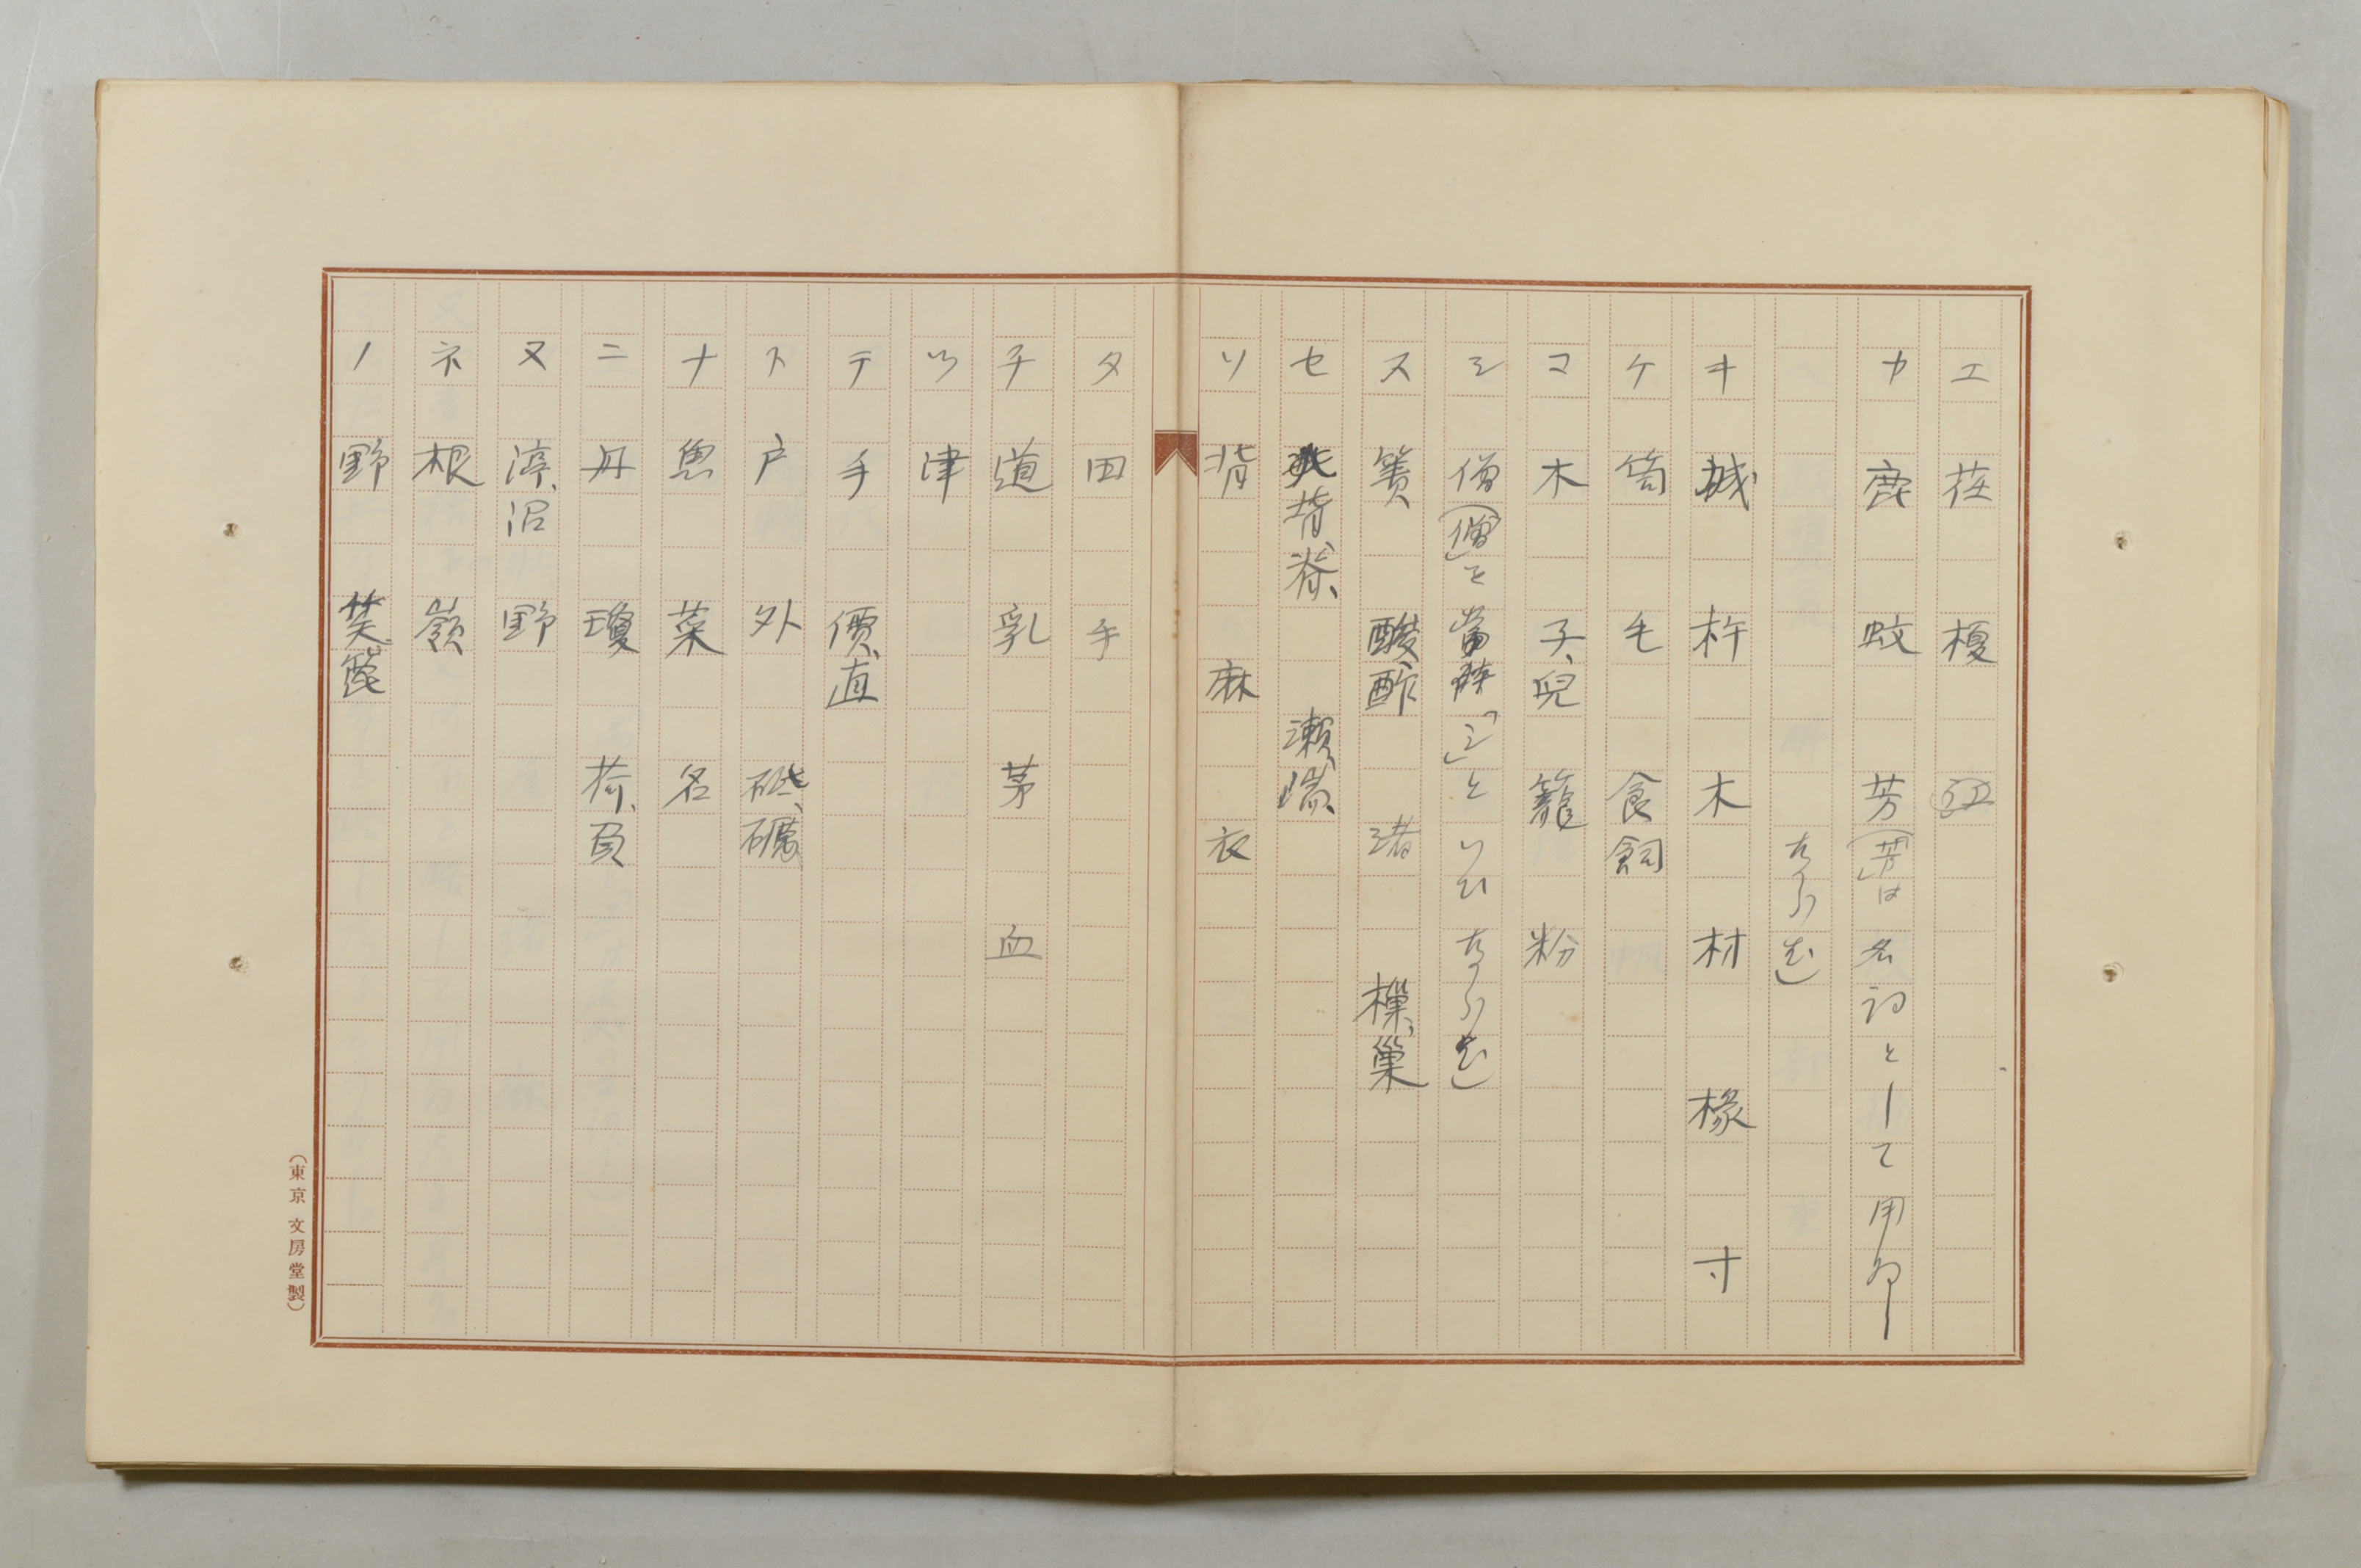 エ 荏 榎 江
カ 鹿 蚊 芳(「芳」は名詞として用ゐし
ならむ)
キ 城 杵 木 材 椽 寸
ケ 笥 毛 食、飼
コ 木 子、兒 籠 粉
シ 僧(「僧」を當時「シ」といひならむ)
ス 簀 酸、酢 渚 樔、巢
セ 背、脊、 瀬、湍、
ソ 背 麻 衣
タ 田 手
チ 道 乳 茅 血
ツ 津
テ 手 價、直
ト 戸 外 砥、礪
ナ 魚 菜 名
ニ 丹 瓊 荷、負
ヌ 渟、沼 野
ネ 根 嶺
ノ 野 笶、箆
(東京 文房堂製)